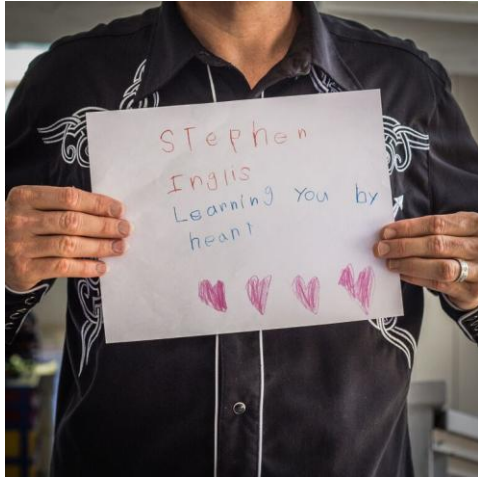 STephen
Inglis
Learning You by
heart